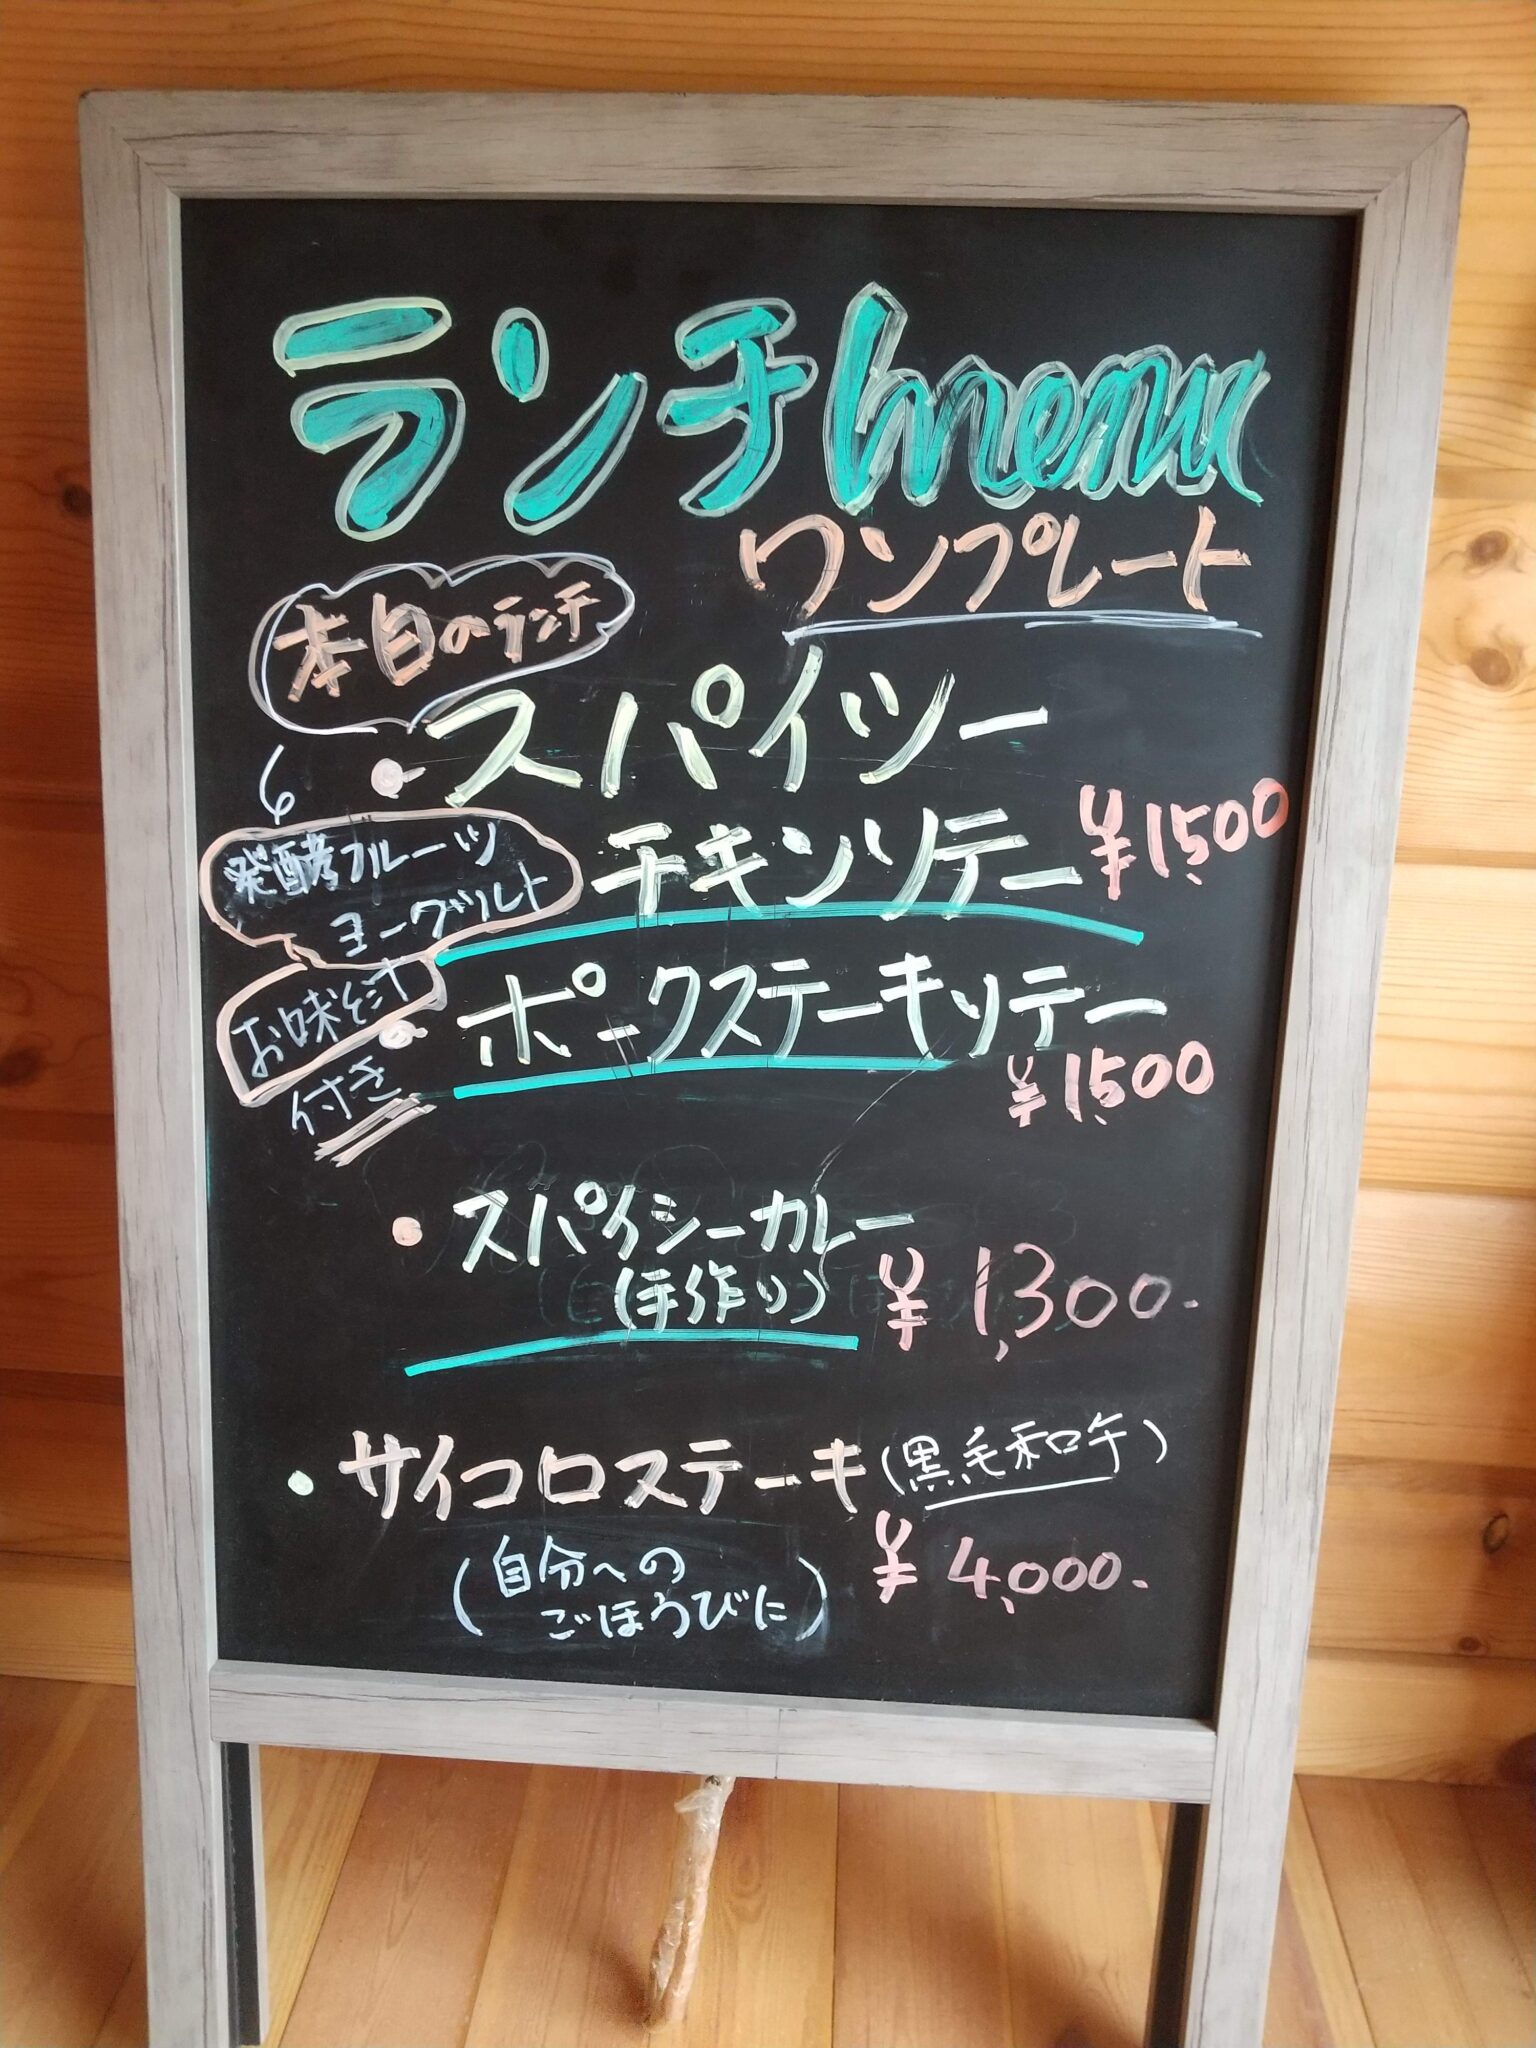 ランチmenu
ワンプレート
本日のランチ
・スパイシー
チキンソテー ¥1,500
発酵フルーツ
ヨーグルト
お味そ汁
付き
・ポークステーキソテー
¥1,500
・スパイシーカレー
(手作り) ¥1,300.
・サイコロステーキ(黒毛和牛)
(自分への
ごほうびに) ¥4,000.